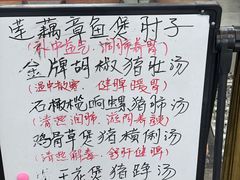 莲藕章鱼煲肘子
(补中益气,润肺养胃)
金牌胡椒猪肚汤
(温中散寒,健脾暖胃)
石橄榄响螺猪肺汤
(清热润肺,滋阴养颜)
鸡骨草煲猪横俐汤
(清热解毒,舒肝健脾)
花煲猪踭汤